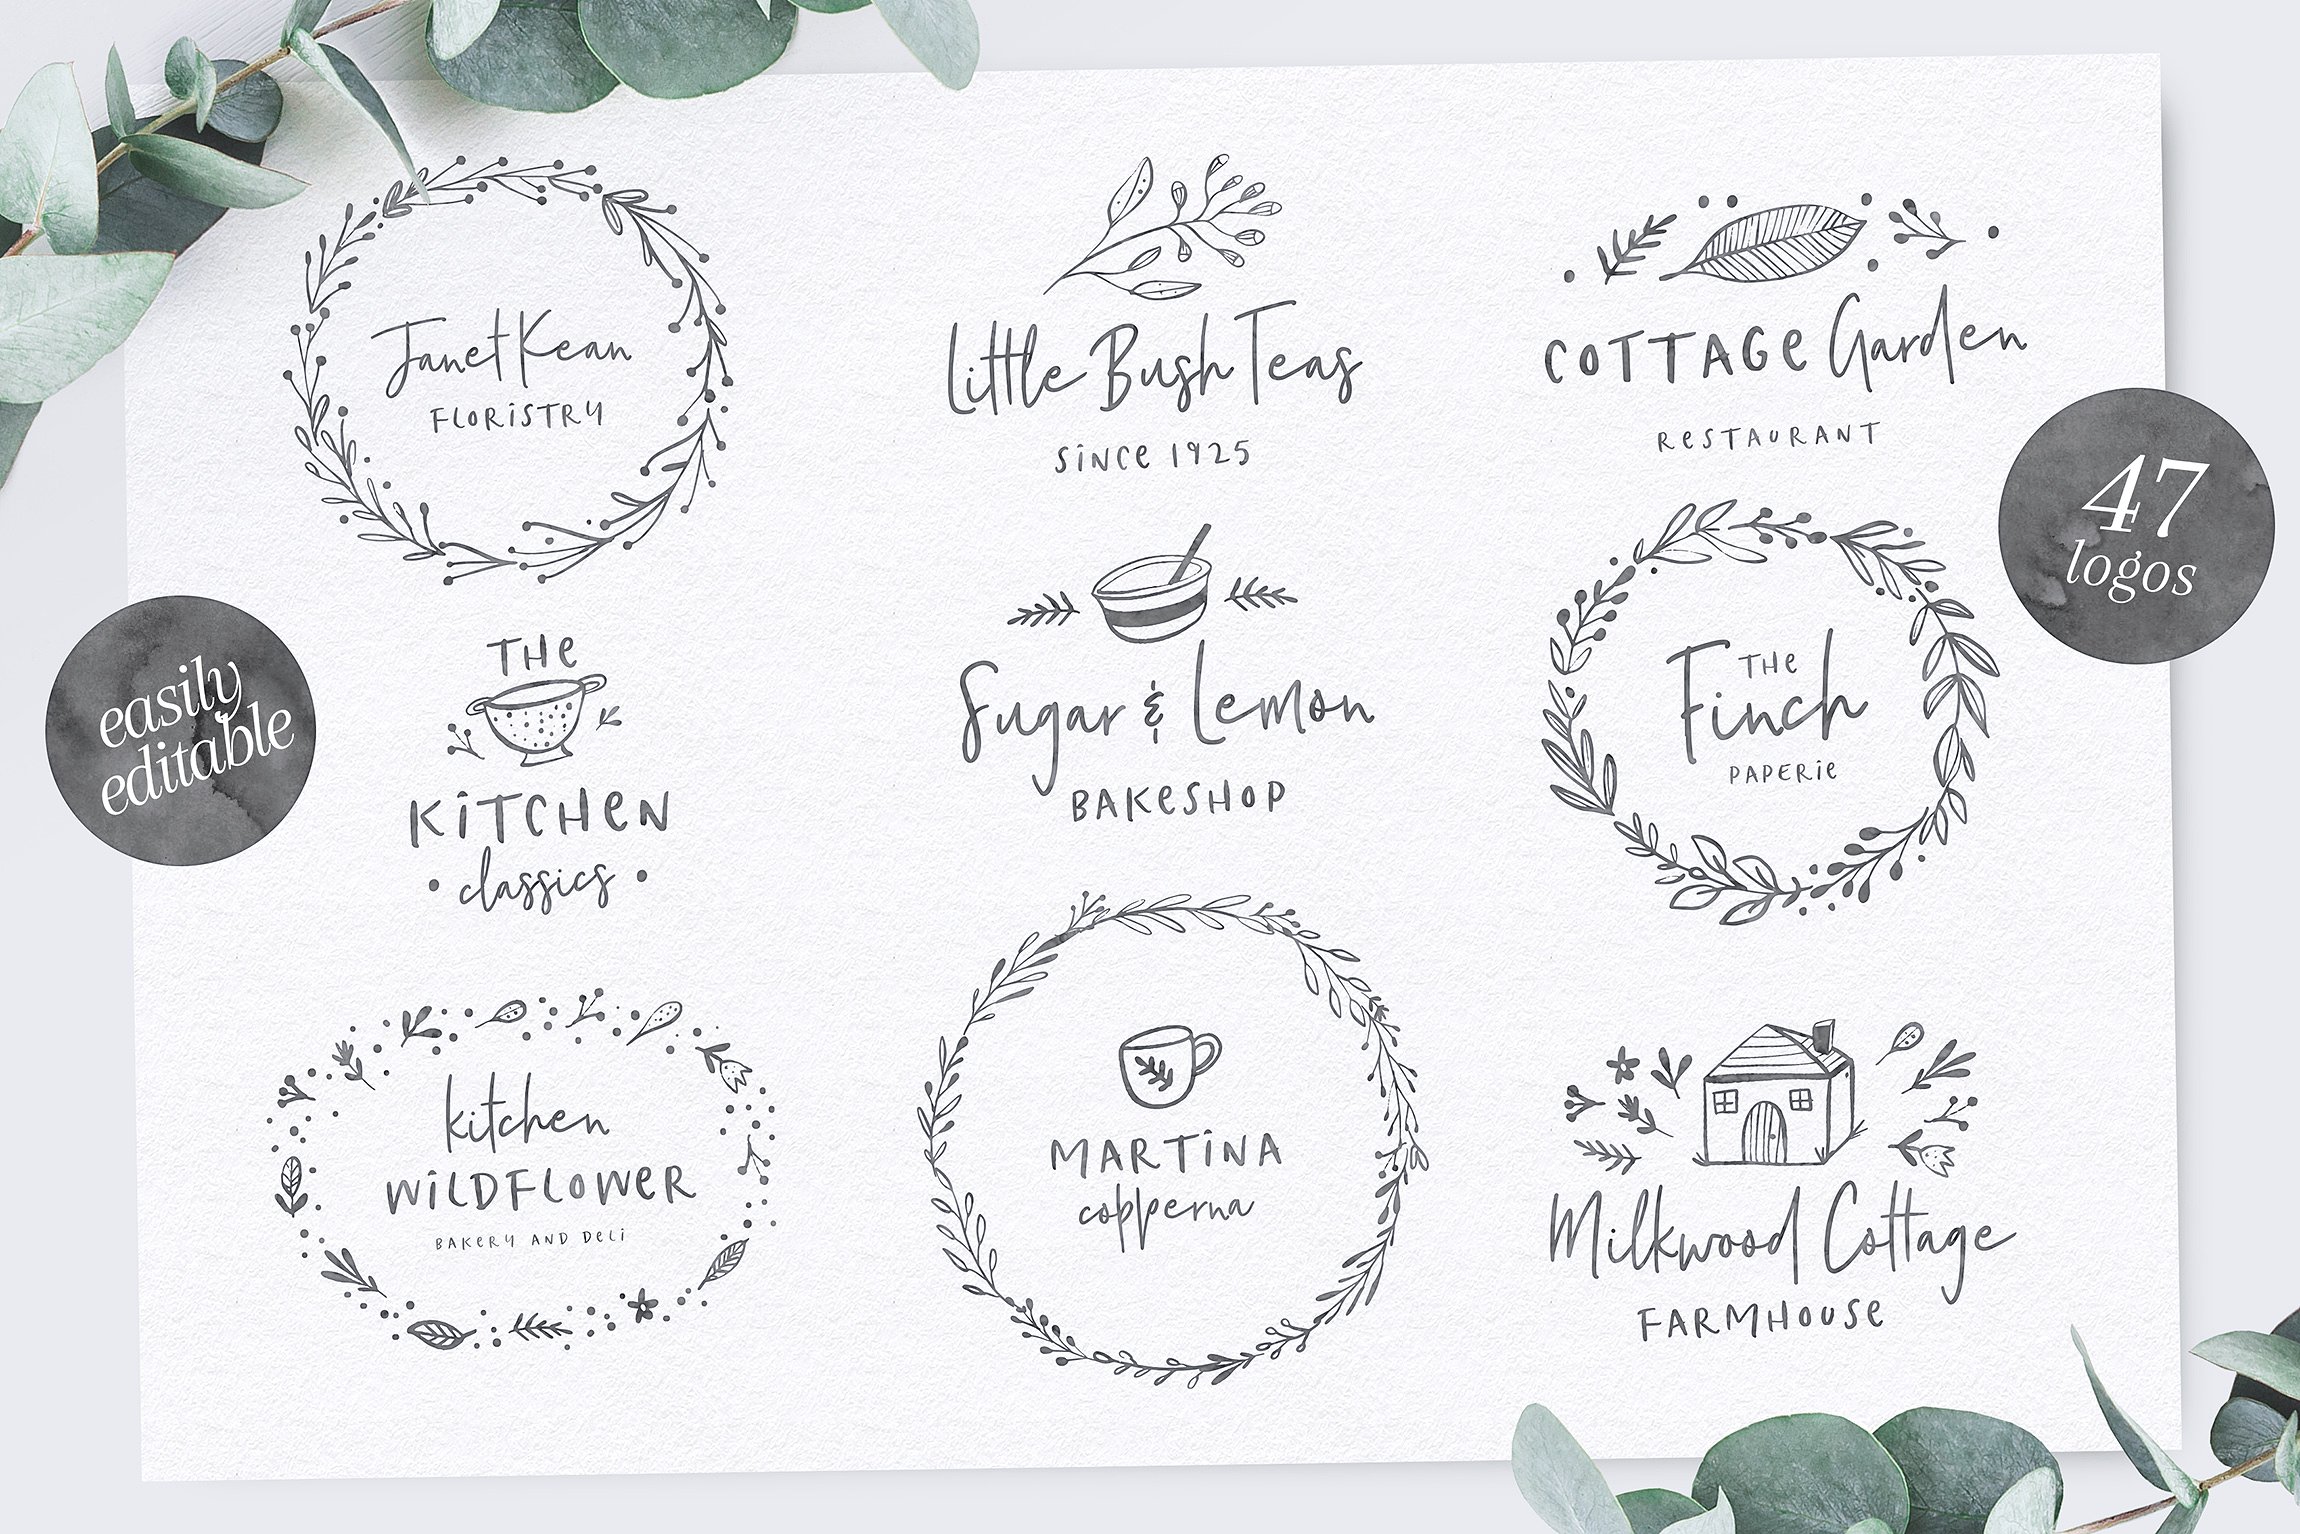 Janet Kean
FLORiSTRY
Little Bush Teas
SiNCe 1925
COTTAGe Garden
ReSTAURANT
47
logos
easily
editable
THe
KiTCHeN
• classics •
Sugar & Lemon
BAKeSHOP
THe
Finch
PAPERie
kitchen
WiLDFLOWeR
BAKeRY AND DeLi
MARTiNA
copperna
Milkwood Cottage
FARMHOUSe